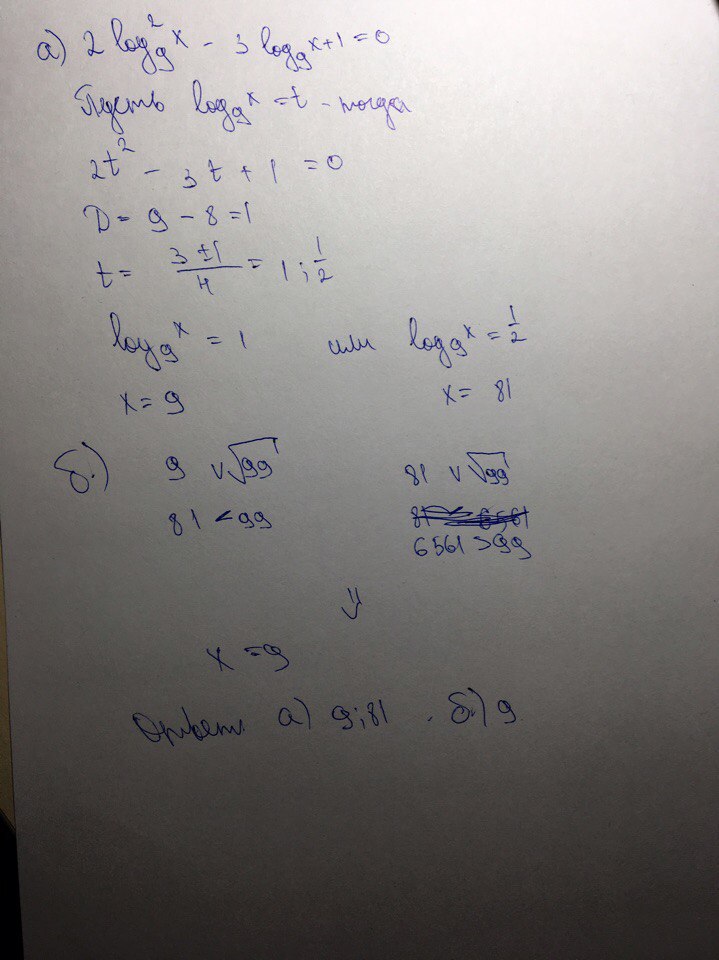 а) 2 log₉² x - 3 log₉ x + 1 = 0
Пусть log₉ x = t - тогда
2t² - 3t + 1 = 0
D = 9 - 8 = 1
t = (3 ± 1)/4 = 1; 1/2
log₉ x = 1 или log₉ x = 1/2
x = 9 x = 81
б.) 9 ∨ √99 81 ∨ √99
81 < 99
6561 > 99
⇓
x = 9
Ответ а) 9; 81. б.) 9